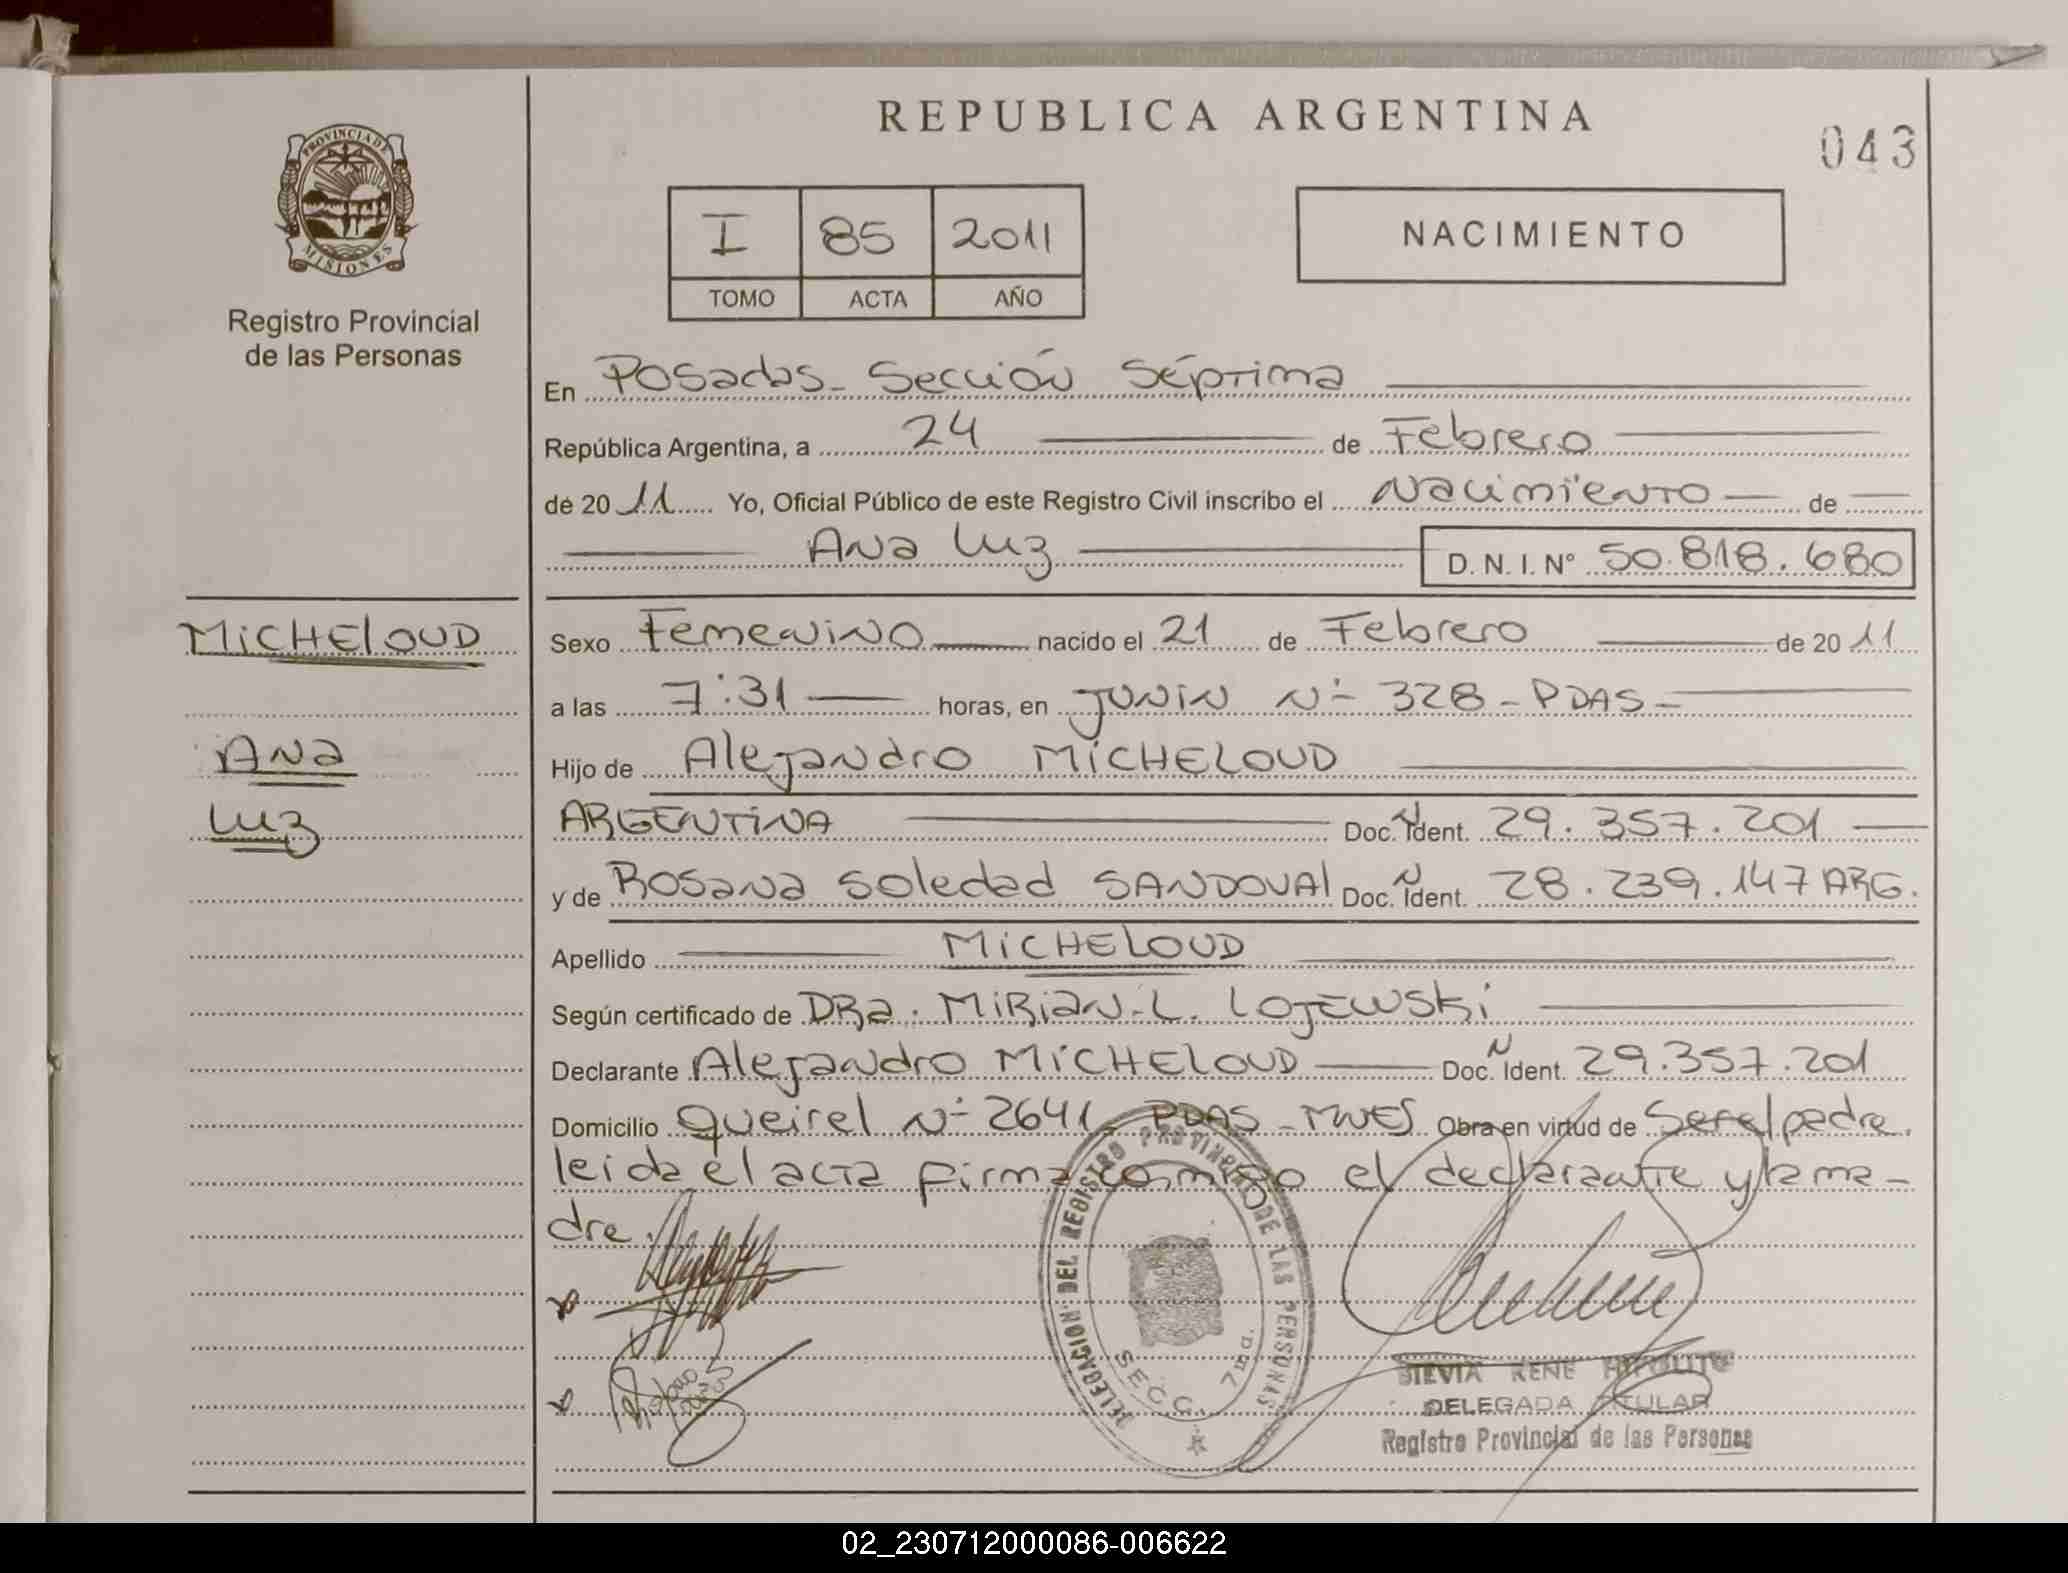 REPUBLICA ARGENTINA
043
PROVINCIA DE
MISIONES
Registro Provincial
de las Personas
I 85 2011
TOMO ACTA AÑO
NACIMIENTO
En Posadas - Sección Séptima
República Argentina, a 24 de Febrero
de 2011 Yo, Oficial Público de este Registro Civil inscribo el Nacimiento de
Ana Luz D. N. I. Nº 50.818.680
MICHELOUD
Ana
Luz
Sexo Femenino nacido el 21 de Febrero de 2011
a las 7:31 horas, en JUNIN Nº 328 - PDAS -
Hijo de Alejandro MICHELOUD
ARGENTINA Doc. N Ident. 29.357.201
y de Rosana Soledad SANDOVAl Doc. N Ident. 28.239.147 ARG.
Apellido MICHELOUD
Según certificado de DRa. MiRian. L. LOJEWSKi
Declarante Alejandro MICHELOUD Doc. N Ident. 29.357.201
Domicilio Queirel Nº 2641 PDAS - MNES Obra en virtud de Ser el padre.
leida el acta firma conmigo el declarante y la ma-
dre.
DELEGACION DEL REGISTRO PROVINCIAL DE LAS PERSONAS
SECC. 7ma.
RENE
DELEGADA TITULAR
Registro Provincial de las Personas
02_230712000086-006622